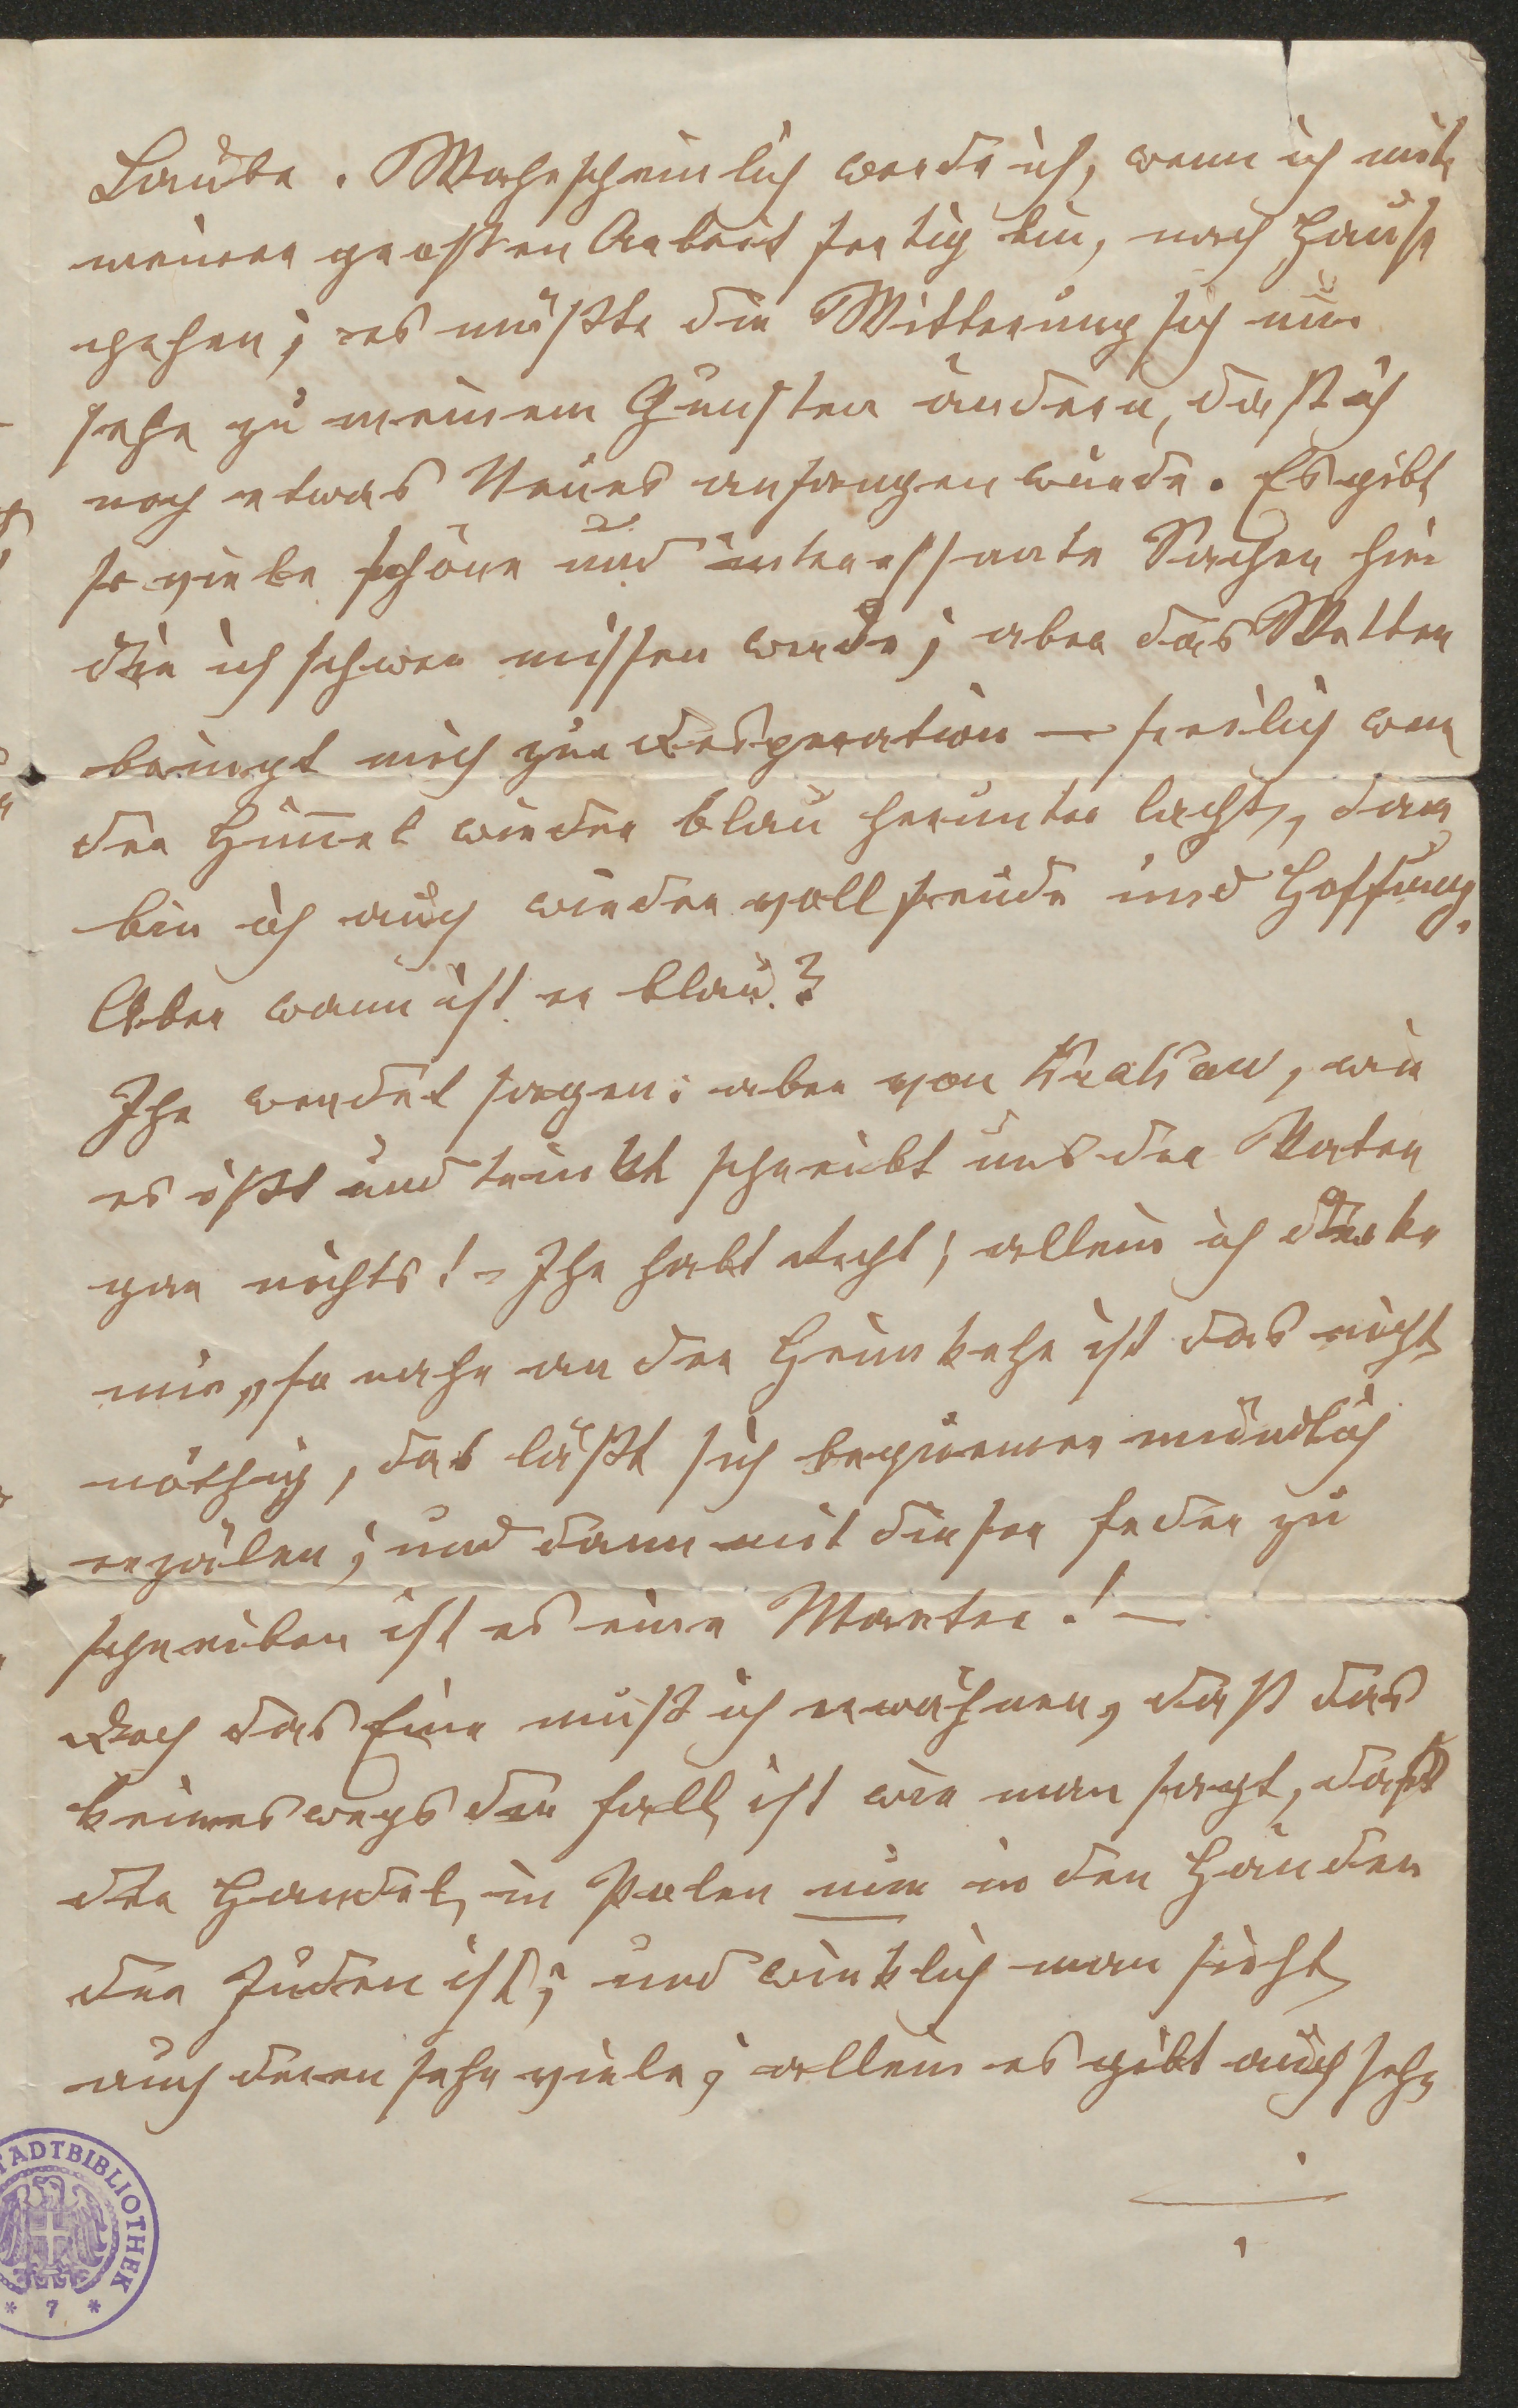 Laube. Wahrscheinlich werde ich, wenn ich mit
meiner großen Arbeit fertig bin, nach Hause
gehen; es müßte die Witterung sich nur
sehr zu meinem Gunsten ändern, daß ich
noch etwas Neues anfangen würde. Es gibt
so viele schöne und interessante Sachen hier
die ich schwer missen werde; aber das Wetter
bringt mich zur Desperation — freilich wen
der Him̅el wieder blau herunter lacht, dan
bin ich auch wieder voll Freude und Hoffnung.
Aber wann ist er blau?
Ihr werdet sagen: aber von Krakau, wie
es ißt und trinkt schreibt uns der Vater
gar nichts! – Ihr habt Recht; allein ich denke
mir, so nahe an der Heimkehr ist das nicht
nöthig, das läßt sich bequemer mündlich
erzälen; und dann mit dieser Feder zu
schreiben ist es eine Marter! —
Doch das Eine muß ich erwähnen, daß das
keineswegs der Fall ist wie man sagt, daß
der Handel in Polen nur in den Händen
der Juden ist; und wirklich man sieht
auch deren sehr viele; allein es gibt auch sehr
STADTBIBLIOTHEK
* 7 *